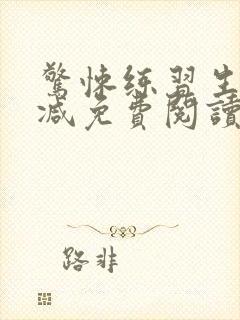 驚悚練習生
減免費閱讀
路非